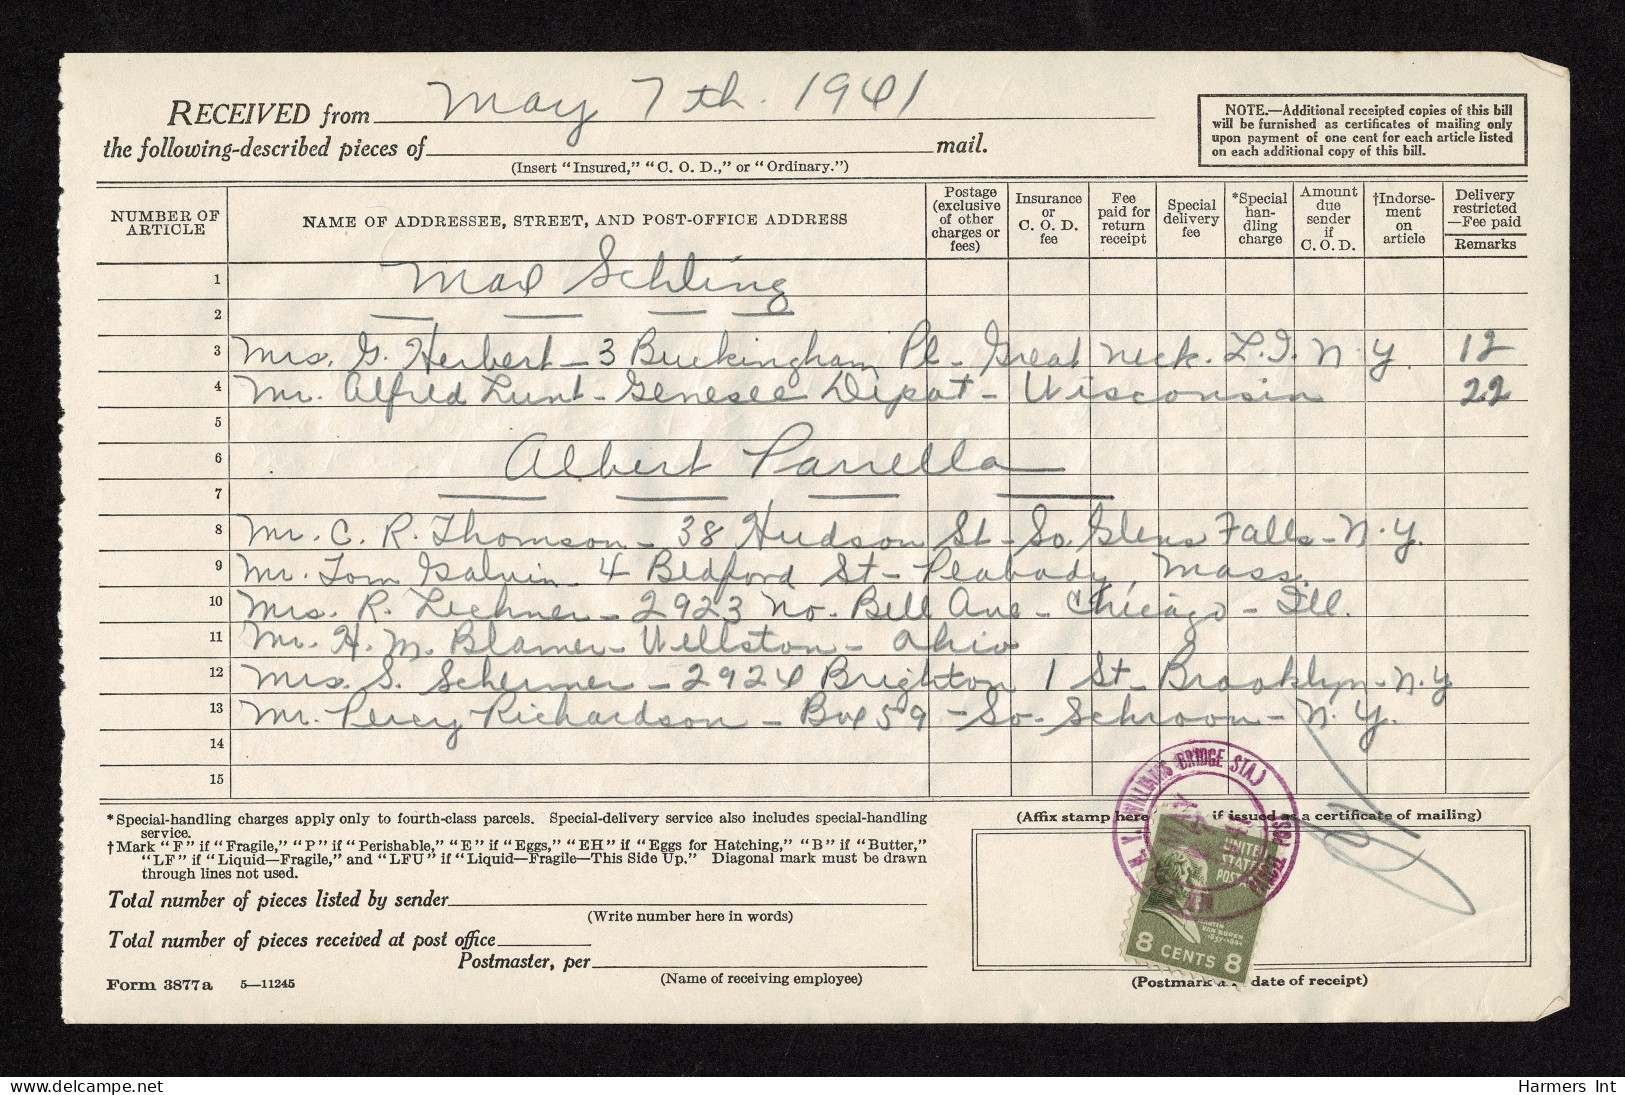 May 7th. 1941
RECEIVED from
the following-described pieces of mail.
(Insert "Insured," "C. O. D.," or "Ordinary.")
NOTE.—Additional receipted copies of this bill
will be furnished as certificates of mailing only
upon payment of one cent for each article listed
on each additional copy of this bill.
NUMBER OF ARTICLE
NAME OF ADDRESSEE, STREET, AND POST-OFFICE ADDRESS
Postage (exclusive of other charges or fees)
Insurance or C. O. D. fee
Fee paid for return receipt
Special delivery fee
*Special handling charge
Amount due sender if C. O. D.
†Indorsement on article
Delivery restricted —Fee paid
Remarks
1 Max Schling
2
3 Mrs. G. Herbert - 3 Buckingham Pl - Great Neck. L.I. N.Y. 12
4 Mr. Alfred Lunt - Genesee Depot - Wisconsin 22
5
6 Albert Parrella
7
8 Mr. C. R. Thomson - 38 Hudson St - So. Glens Falls - N.Y.
9 Mr. Tom Galvin - 4 Bedford St - Peabody, Mass.
10 Mrs. R. Lechner - 2923 No. Bell Ave - Chicago - Ill.
11 Mr. H. M. Blamer - Wellston - Ohio
12 Mrs. S. Schermer - 2924 Brighton 1 St - Brooklyn - N.Y
13 Mr. Percy Richardson - Box 59 - So. Schroon - N.Y.
14
15
*Special-handling charges apply only to fourth-class parcels. Special-delivery service also includes special-handling
service.
†Mark "F" if "Fragile," "P" if "Perishable," "E" if "Eggs," "EH" if "Eggs for Hatching," "B" if "Butter,"
"LF" if "Liquid—Fragile," and "LFU" if "Liquid—Fragile—This Side Up." Diagonal mark must be drawn
through lines not used.
Total number of pieces listed by sender
(Write number here in words)
Total number of pieces received at post office
Postmaster, per
(Name of receiving employee)
Form 3877a 5—11245
(Affix stamp here if issued as a certificate of mailing)
N.Y. (WILLIAMS BRIDGE STA.)
PARCEL POST
UNITED
STATES
POSTAGE
MARTIN
VAN BUREN
1837-1841
8 CENTS 8
(Postmark date of receipt)
www.delcampe.net
Harmers Int